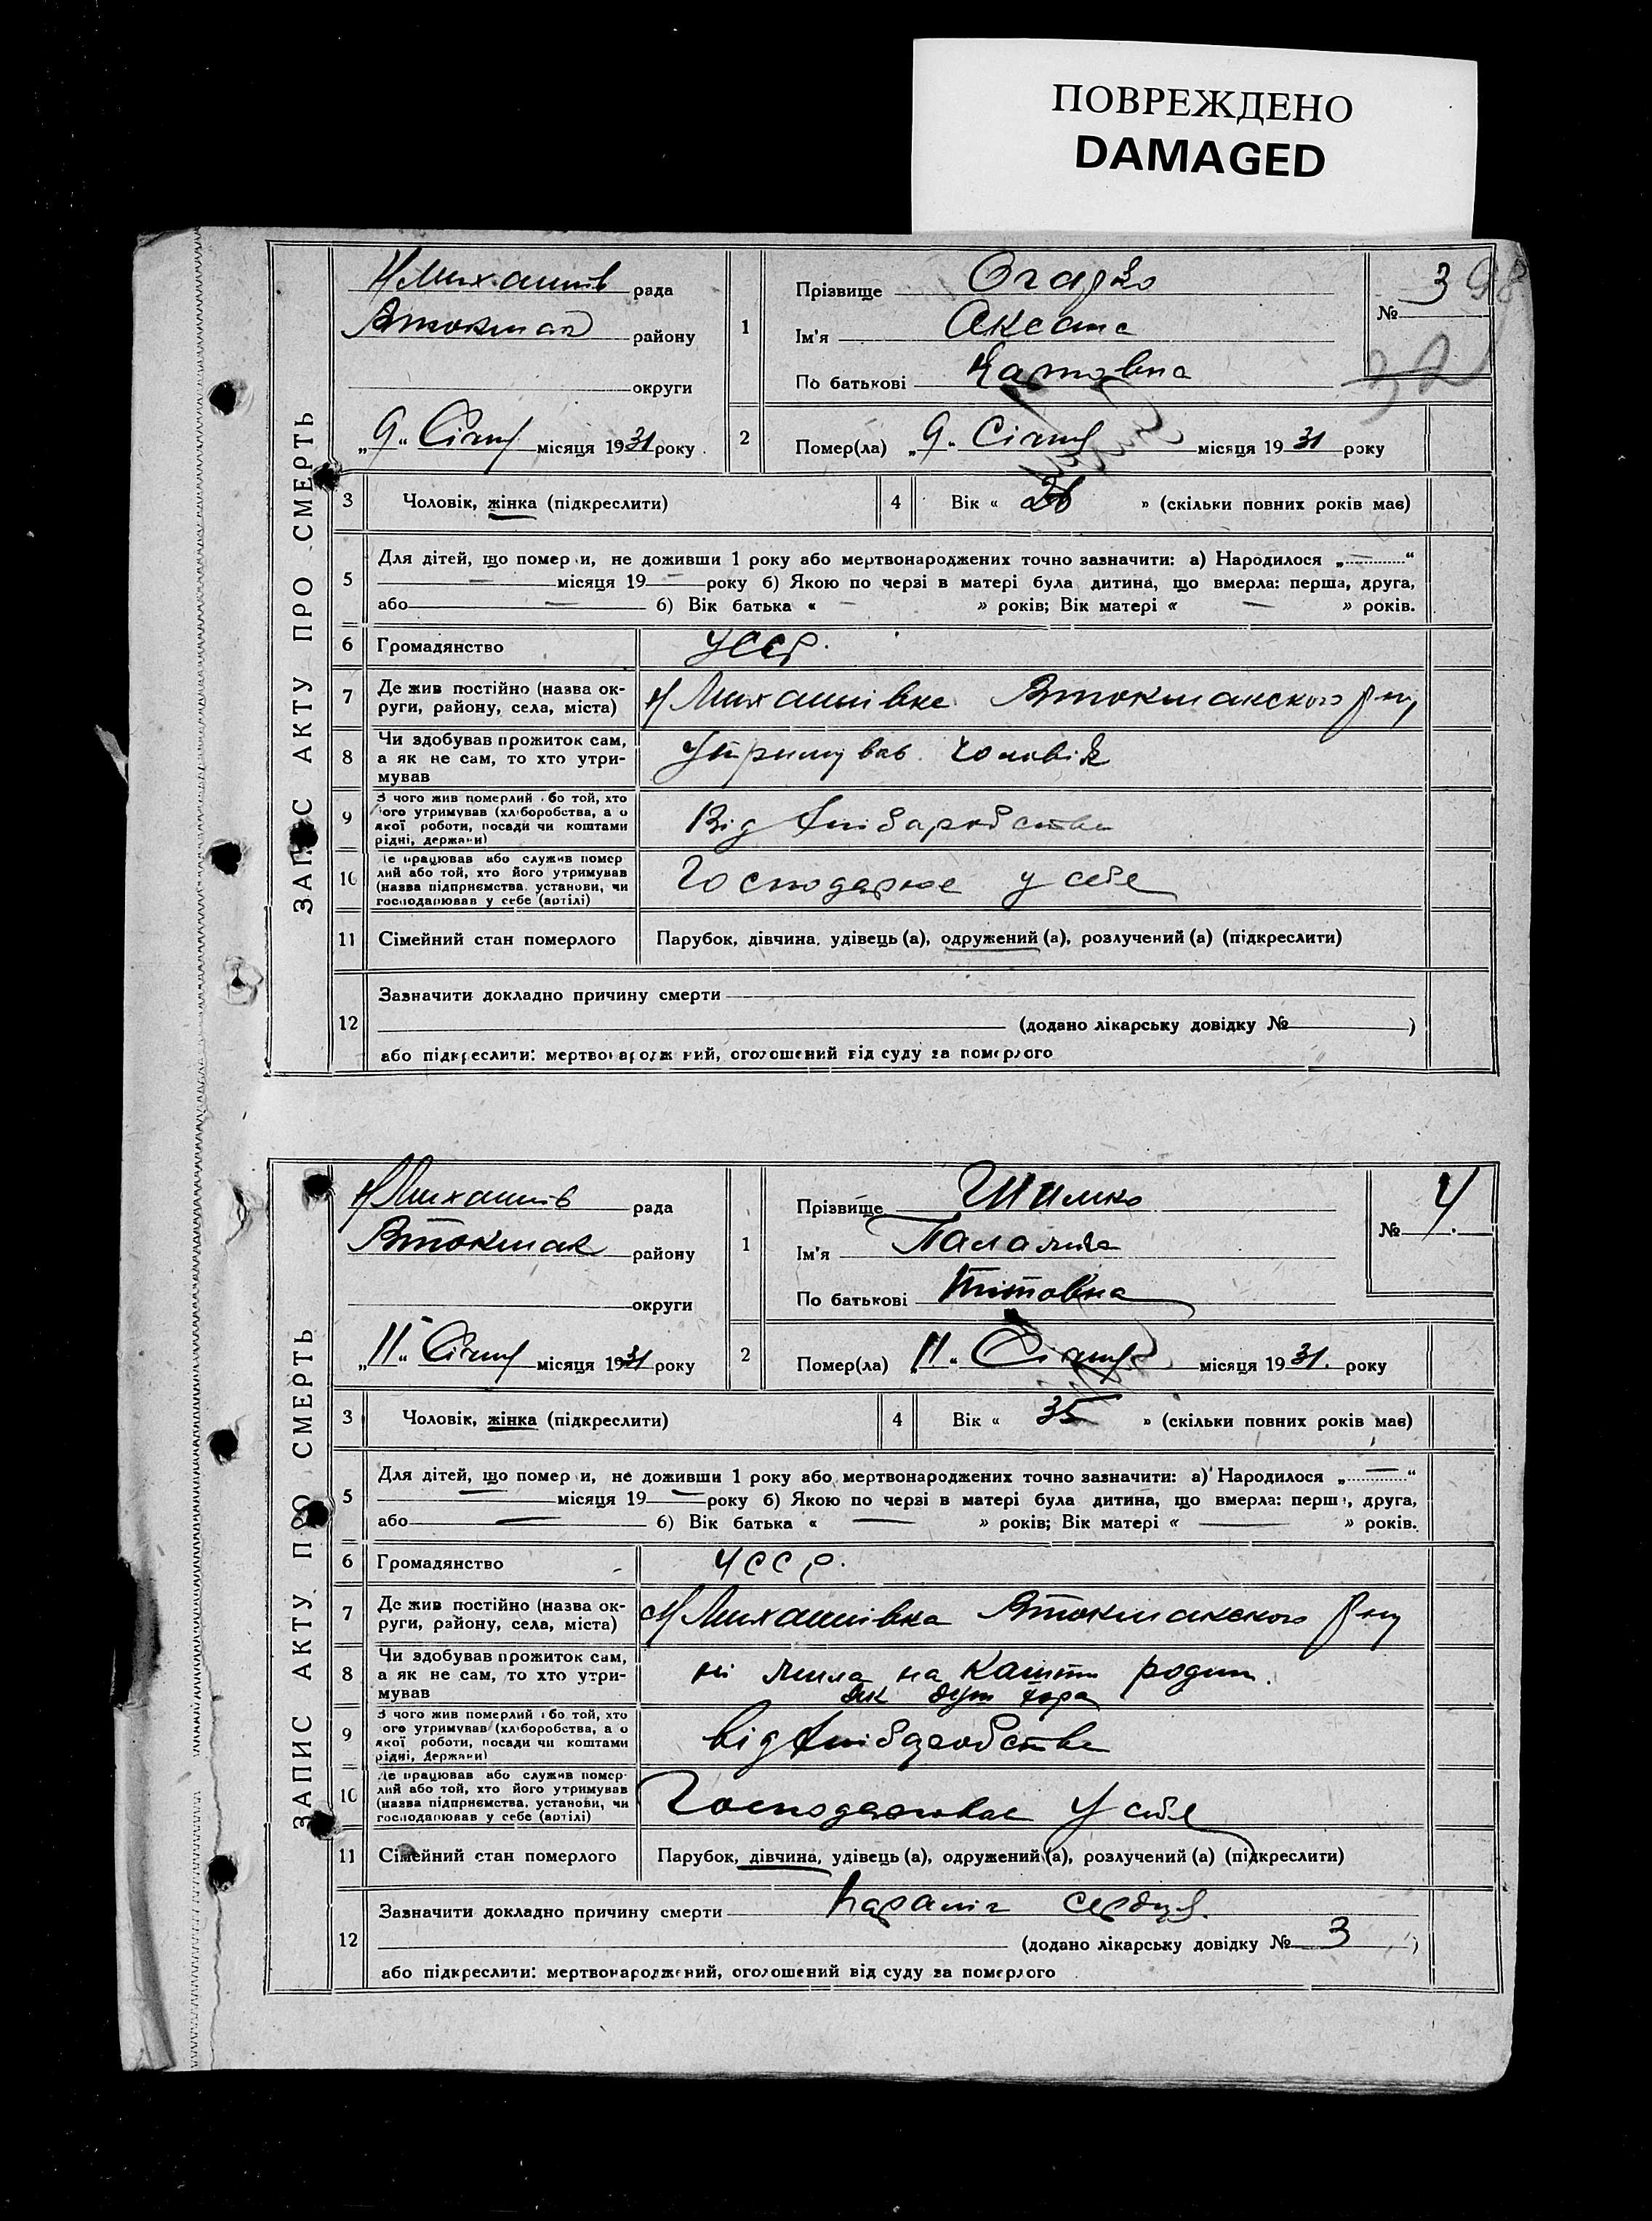 ПОВРЕЖДЕНО
DAMAGED
ЗАПИС АКТУ ПРО СМЕРТЬ
рада
району
округи
„9“ Січня місяця 1931 року
1
Прізвище
Ім'я
По батькові
№ 3
98
32
2
Помер(ла) „9“ Січня місяця 1931 року
3
Чоловік, жінка (підкреслити)
4
Вік « » (скільки повних років має)
5
Для дітей, що померли, не доживши 1 року або мертвонароджених точно зазначити: а) Народилося „—“
— місяця 19— року б) Якою по черзі в матері була дитина, що вмерла: перша, друга,
або — б) Вік батька « — » років; Вік матері « — » років.
6
Громадянство
УССР.
7
Де жив постійно (назва ок-
руги, району, села, міста)
Н Михайлівка Втокмакского р-ну
8
Чи здобував прожиток сам,
а як не сам, то хто утри-
мував
Утримував чоловік
9
З чого жив померлий або той, хто
його утримував (хліборобства, а о
якої роботи, посади чи коштами
рідні, держави)
Від хліборобства
10
Де працював або служив помер
лий або той, хто його утримував
(назва підприємства, установи, чи
господарював у себе (артілі)
Господарює у себе
11
Сімейний стан померлого
Парубок, дівчина, удівець (а), одружений (а), розлучений (а) (підкреслити)
12
Зазначити докладно причину смерти
(додано лікарську довідку № )
або підкреслити: мертвонароджений, оголошений від суду за померлого
ЗАПИС АКТУ ПРО СМЕРТЬ
рада
Втокмак району
округи
„11“ Січня місяця 1931 року
1
Прізвище Шимко
Ім'я
По батькові Титовна
№ 4.
2
Помер(ла) „11“ Січня місяця 1931. року
3
Чоловік, жінка (підкреслити)
4
Вік « 35 » (скільки повних років має)
5
Для дітей, що померли, не доживши 1 року або мертвонароджених точно зазначити: а) Народилося „—“
— місяця 19— року б) Якою по черзі в матері була дитина, що вмерла: перша, друга,
або — б) Вік батька « — » років; Вік матері « — » років.
6
Громадянство
УССР.
7
Де жив постійно (назва ок-
руги, району, села, міста)
Н Михайлівка Втокмакского р-ну
8
Чи здобував прожиток сам,
а як не сам, то хто утри-
мував
ні жила на кошти родин.
9
З чого жив померлий або той, хто
його утримував (хліборобства, а о
якої роботи, посади чи коштами
рідні, держави)
від хліборобства
10
Де працював або служив помер-
лий або той, хто його утримував
(назва підприємства, установи, чи
господарював у себе (артілі)
Господарював у себе
11
Сімейний стан померлого
Парубок, дівчина, удівець (а), одружений (а), розлучений (а) (підкреслити)
12
Зазначити докладно причину смерти параліч сердця.
(додано лікарську довідку № 3 )
або підкреслити: мертвонароджений, оголошений від суду за померлого